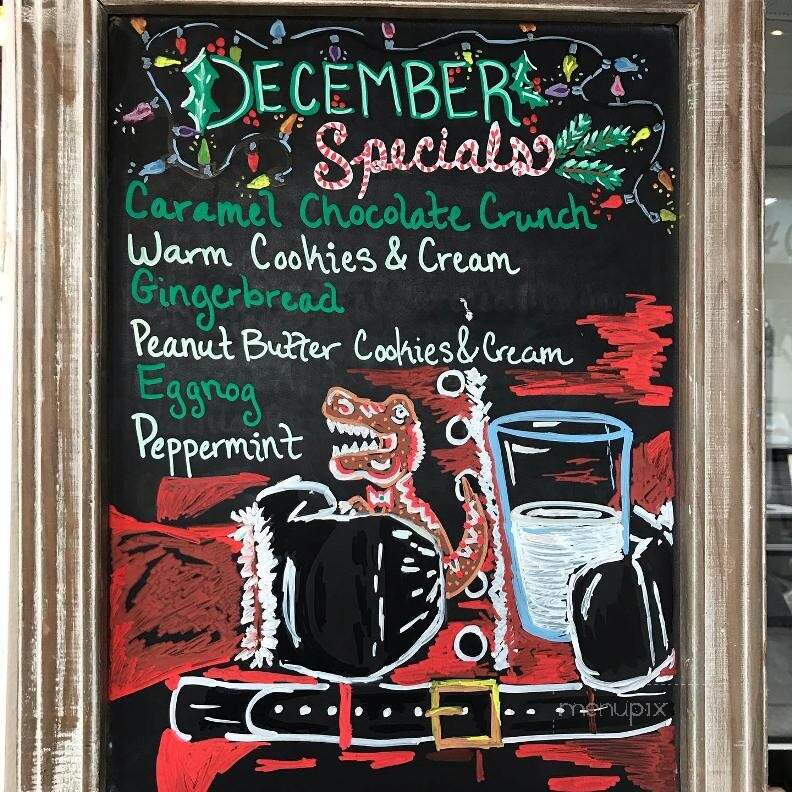 DECEMBER
Specials
Caramel Chocolate Crunch
Warm Cookies & Cream
Gingerbread
Peanut Butter Cookies & Cream
Eggnog
Peppermint
menupix